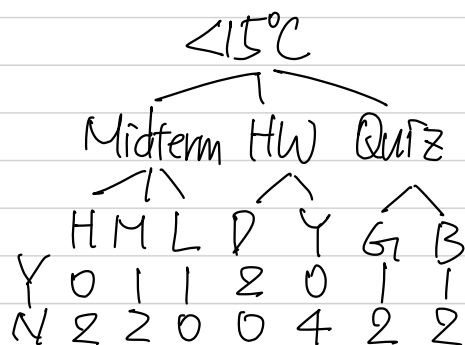 <15°C
Midterm HW Quiz
H M L D Y G B
Y 0 1 1 2 0 1 1
N 2 2 0 0 4 2 2